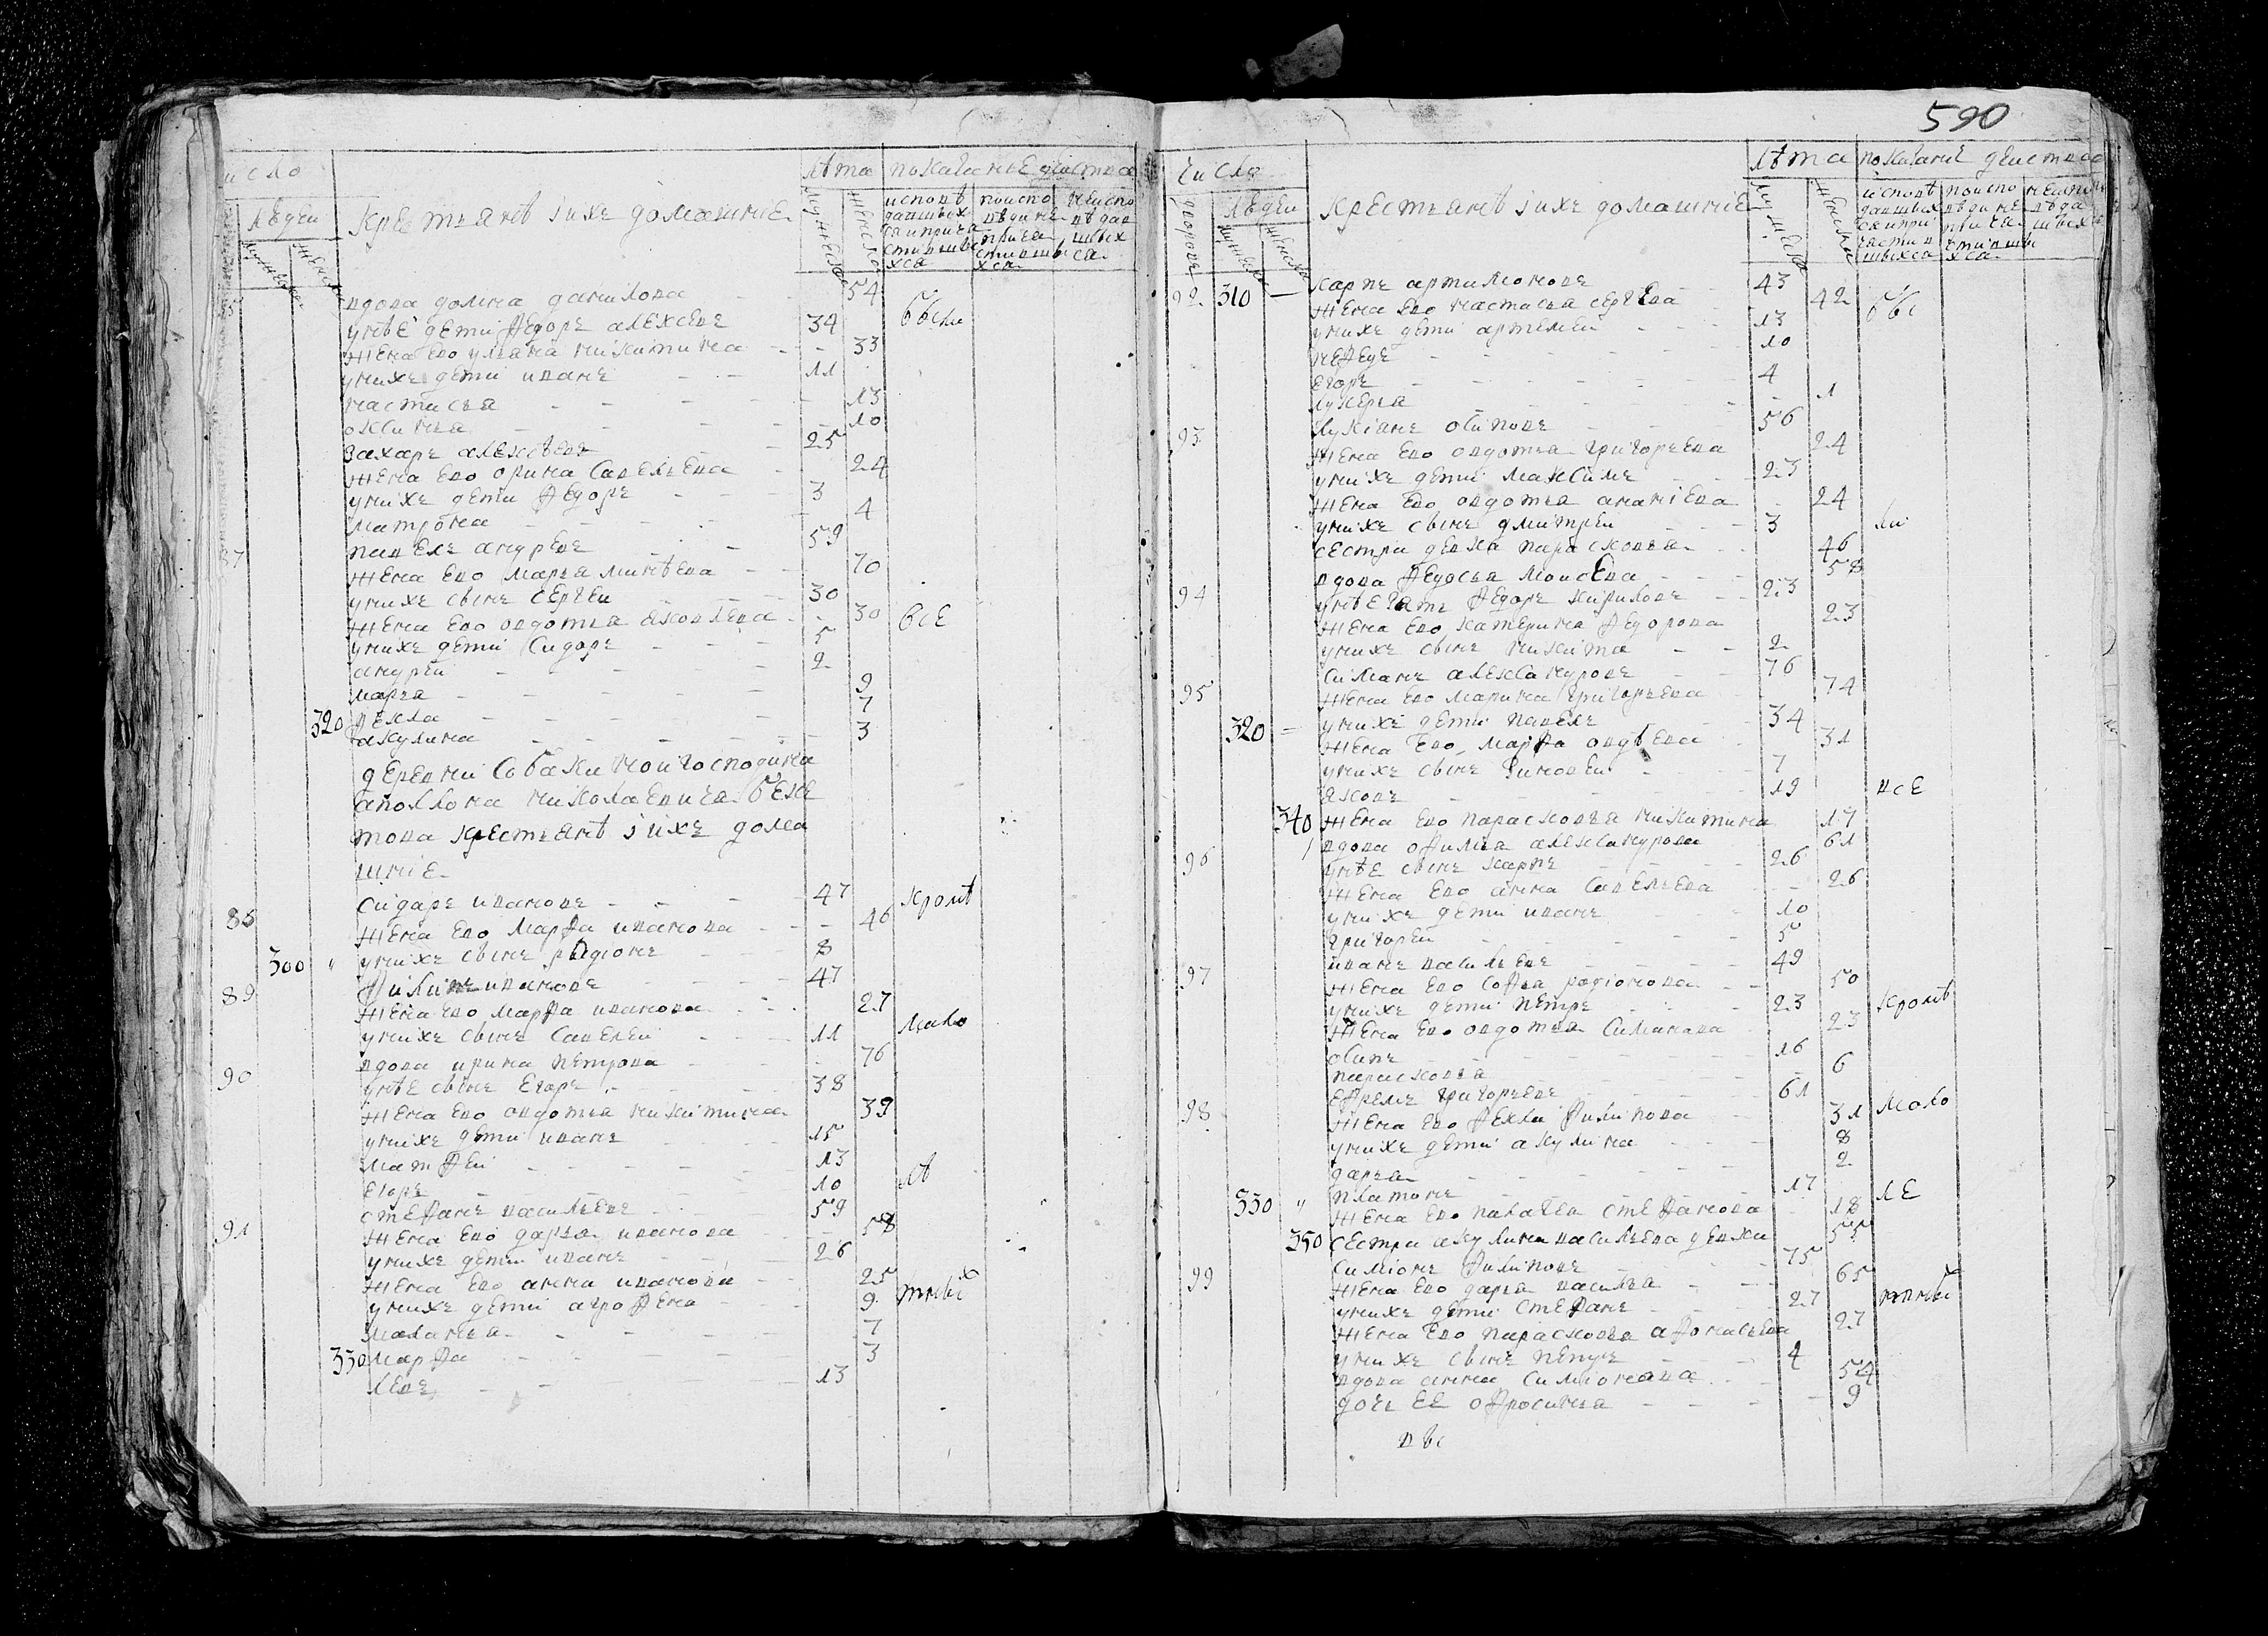 число
лѣта показание действа
людеи
крестьянѣ иихъ домашние
мужеска
женска
исповѣдавшихся и причастившихся
по исповѣди не причастившихся
не исповѣдавшихся
вдова домна данилова - 54
унѣе дети федоръ алексеевъ 34 бысти
жена ево ульяна никитина - - 33
унихъ дети иванъ - - 11
настасья - - - 13
оксинья - - - 10
захаръ алексѣевъ - 25
жена ево орина савельева - 24
унихъ дети федоръ - - 3
матрона - - - 4
87 павелъ андреевъ - - 59
жена ево марья минѣева - - 70
унихъ сынъ сергеи - - 30
жена ево овдотья яковлева - 30 все
унихъ дети сидоръ - - 5
андреи - - - 2
марья - - - 9
320 фекла - - - 7
акулина - - - 3
деревни собакиной господина
аполлона николаевича беке
това крестьянѣ иихъ дома
шние
88 сидаръ ивановъ - - - 47 кромѣ
жена ево марфа иванова - - - 46
300 " унихъ сынъ родионъ - - 8
89 филипъ ивановъ - - - 47
жена ево марфа иванова - - 27
унихъ сынъ савелеи - - - 11 мало
90 вдова ирина петрова - - 76
унѣе сынъ егоръ - - - 38
жена ево овдотья никитина 39
унихъ дети иванъ - - - 15
матфеи - - - - 13
егоръ - - - 10 лѣ
91 стефанъ васильевъ - - 59
жена ево дарья иванова - - 58
унихъ дети иванъ - - 26
жена ево анна иванова - - 25
унихъ дети агрофена - - 9 тныхъ
маланья - - - - 7
330 марфа - - - - 3
левъ - - - - 13
590
число
лѣта показание действа
дворовъ
людеи
крестьянѣ иихъ домашние
мужеска
женска
92 310 — карпъ артамоновъ 43
жена ево настасья сергеева - 42 бы
унихъ дети артемеи - 13
нефедъ - - - 10
егоръ - - - 4
лукерья - - - 1
93 лукианъ осиповъ - - 56
жена ево овдотья григорьева 24
унихъ дети максимъ - - 23
жена ево овдотья ананиева - 24
унихъ сынъ дмитреи - - - 3 ли
сестра девка парасковья - - 46
94 вдова федосья моисеева - - - 58
унѣе зать федоръ кириловъ - - 23
жена ево катерина федорова 23
унихъ сынъ никита - - 2
95 симанъ александровъ - - 76
жена ево марина григорьева 74
320 = унихъ дети павелъ - - 34
жена ево марфа авдѣева - 31
унихъ сынъ тимофеи - - 7
яковъ - - - 19 все
340 жена ево парасковья никитина 17
96 вдова офимья александрова 61
унѣе сынъ карпъ - - - 26
жена ево анна савельева - - 26
унихъ дети иванъ - - 10
григореи - - - 5
97 иванъ васильевъ - - 49
жена ево софья родионова - - 50
унихъ дети петръ - - - 23 кромѣ
жена ево овдотья симанава - 23
осипъ - - - 16
парасковья - - - 6
98 ефремъ григорьевъ - - - 61
жена ево фекла филипова - - 31 мало
унихъ дети акулина - - - 8
дарья - - - 2
330 " платонъ - - - 17
жена ево палагея стефанова - 18 ле
350 сестра акулина васильева девка 55
99 симионъ филиповъ - - - 75
жена ево дарья васильева - - 65
унихъ дети стефанъ - - - 27
жена ево парасковья афонасьева 27
унихъ сынъ петръ - - - 4
вдова анна симионава - - 54
дочь ее офросинья - - - 9
вы